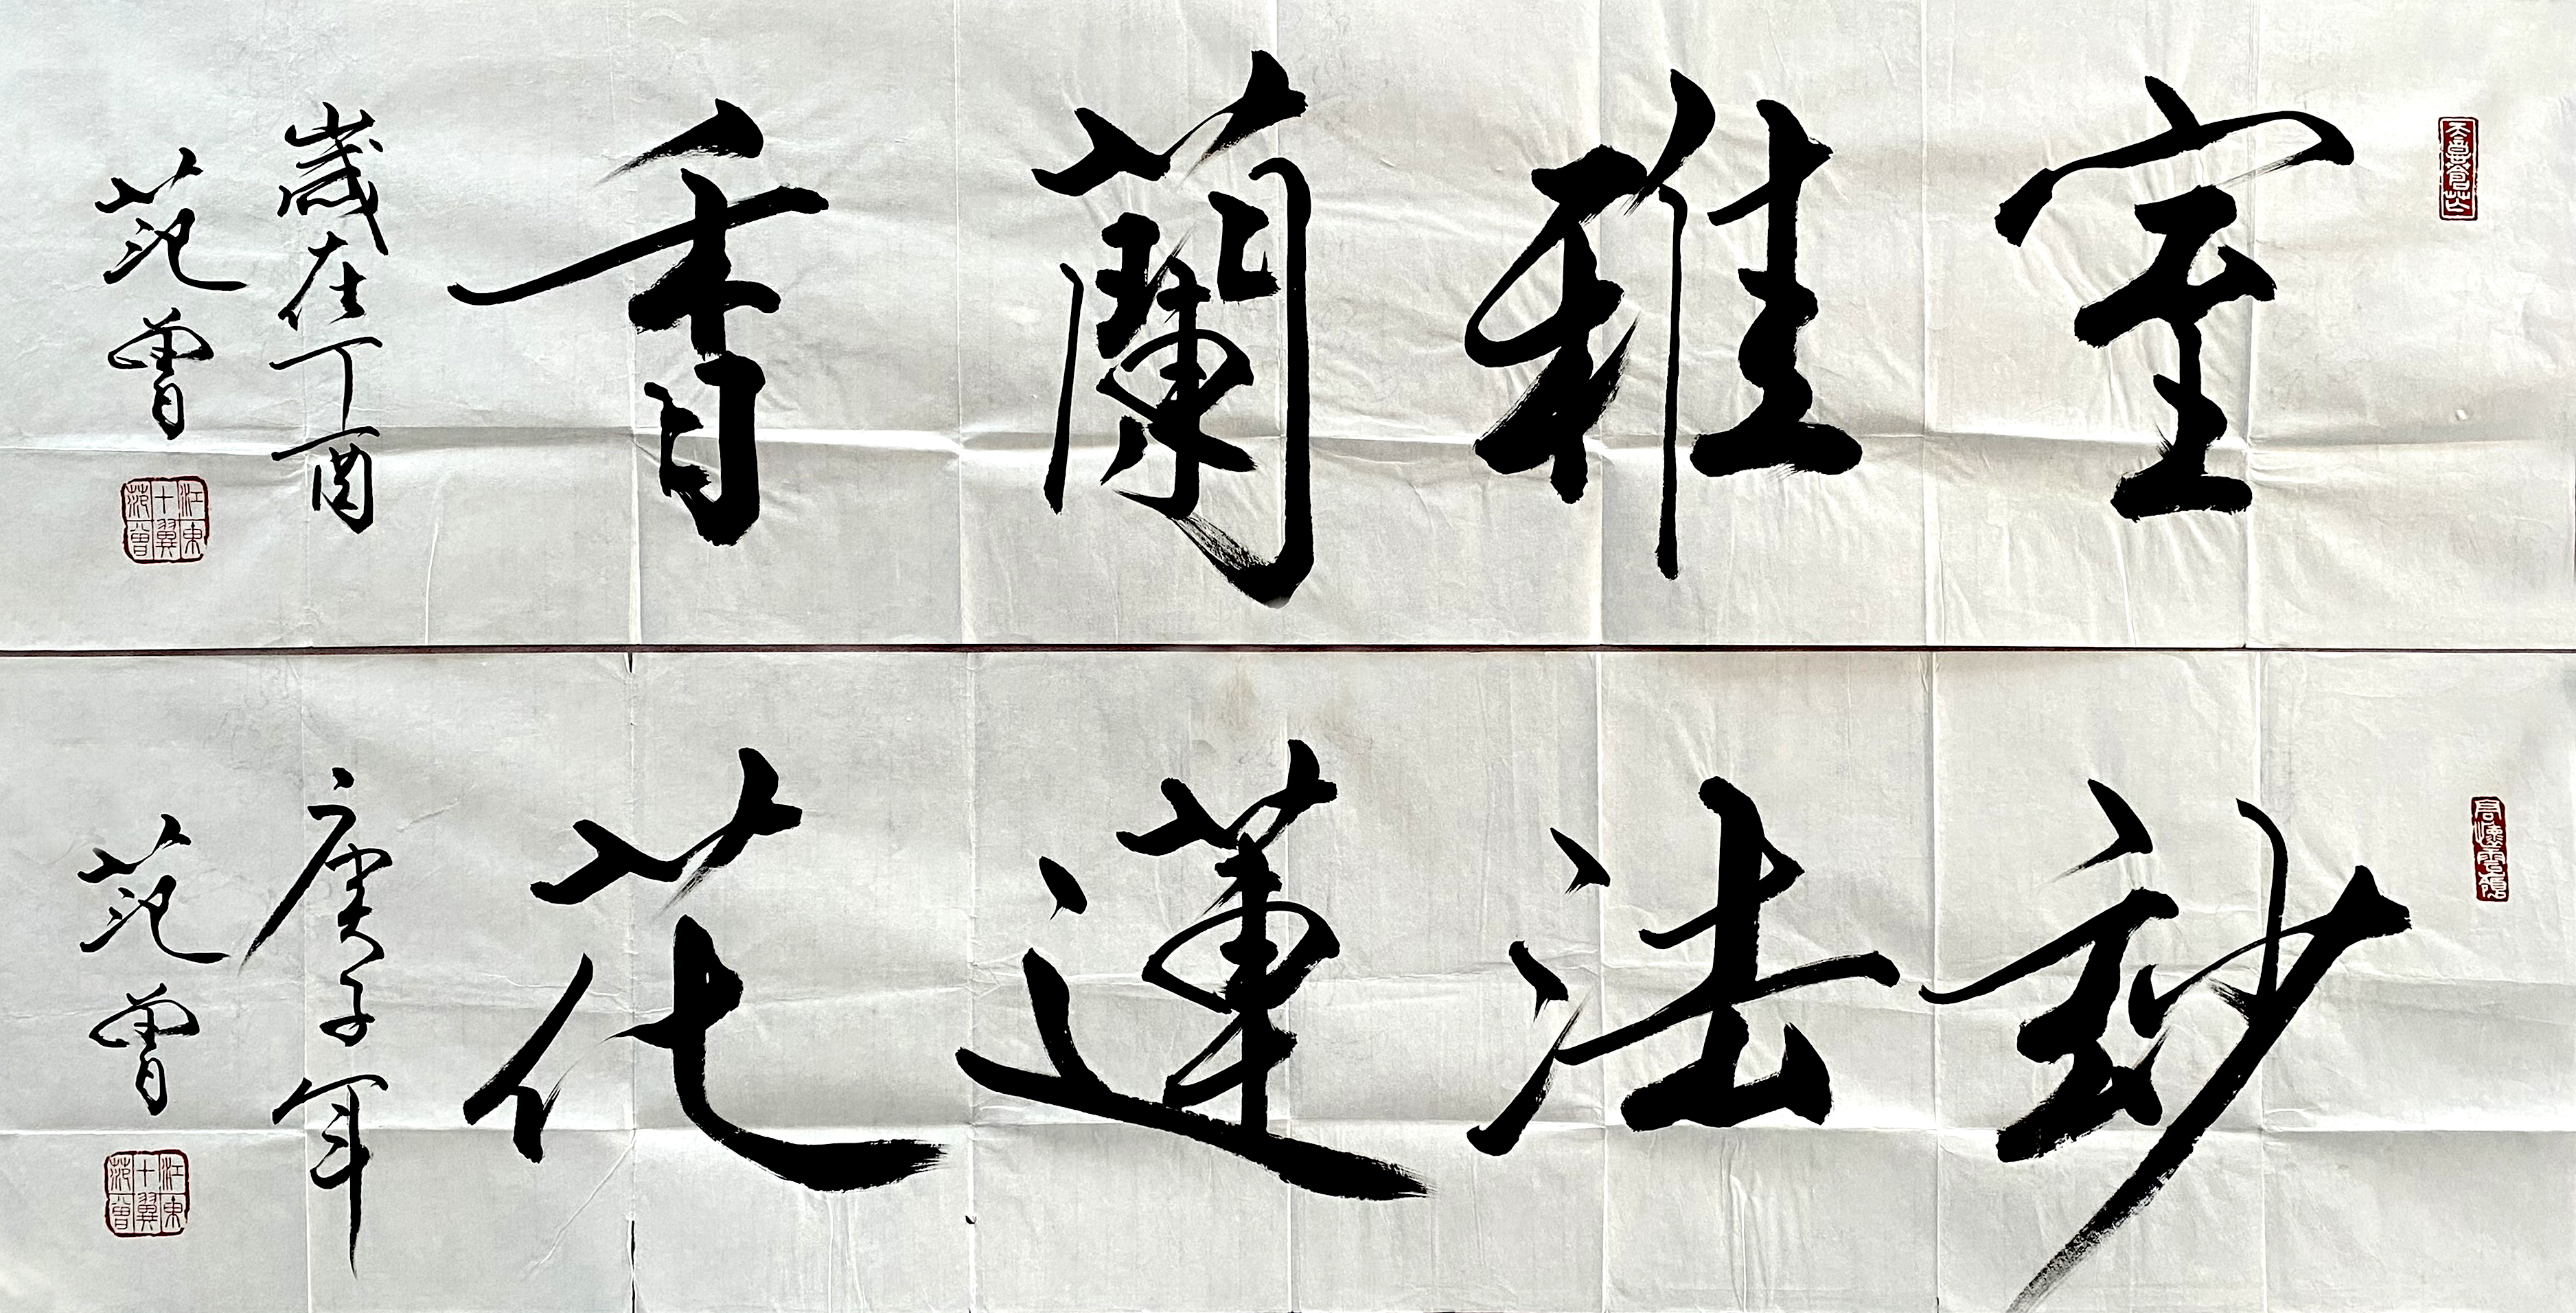 室雅蘭香
歲在丁酉
范曾
江東十翼范曾
妙法蓮花
庚子年
范曾
江東十翼范曾